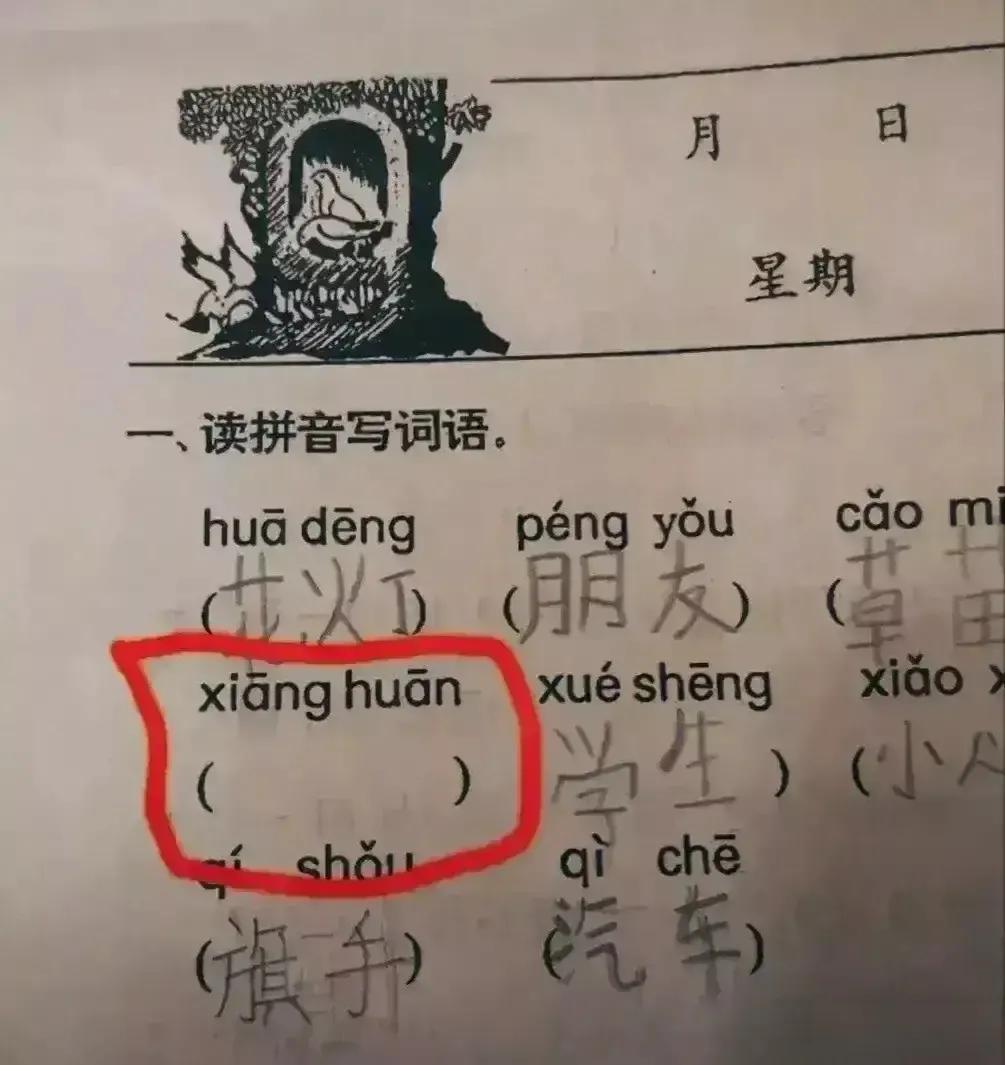 月 日
星期
一、读拼音写词语。
huā dēng péng yǒu cǎo mi
(花灯) (朋友) (草苗
xiāng huān xué shēng xiǎo
( ) 学生 ) (小
qí shǒu qì chē
(旗手) (汽车)